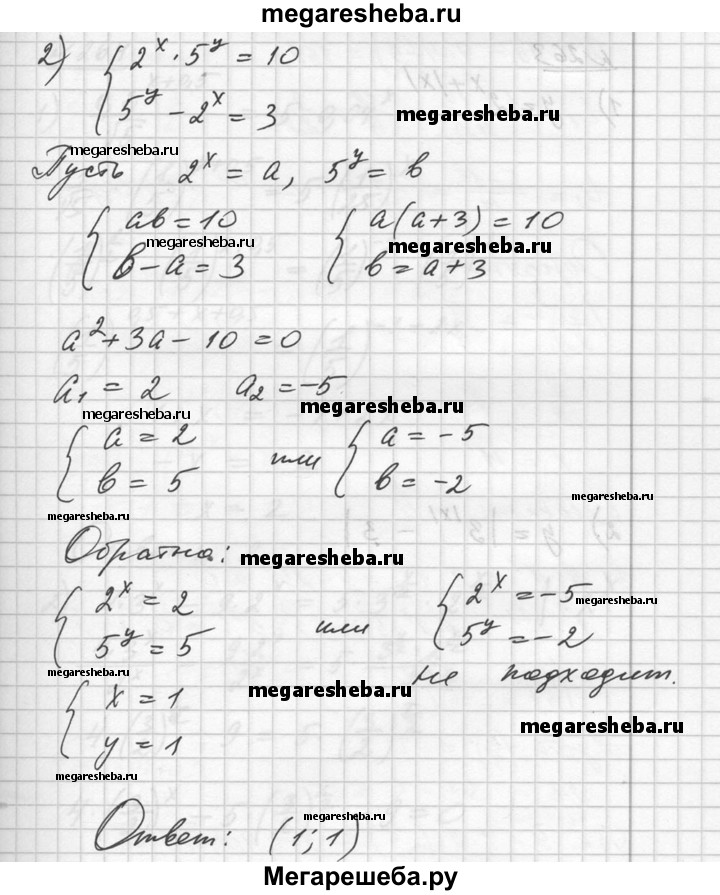 megaresheba.ru
2) { 2^x · 5^y = 10
5^y − 2^x = 3
megaresheba.ru
megaresheba.ru
Пусть 2^x = a, 5^y = b
{ ab = 10 { a(a+3) = 10
megaresheba.ru megaresheba.ru
b − a = 3 b = a + 3
a² + 3a − 10 = 0
a₁ = 2 a₂ = −5
megaresheba.ru megaresheba.ru
{ a = 2 или { a = −5
b = 5 b = −2
megaresheba.ru
megaresheba.ru
Обратна: megaresheba.ru
{ 2^x = 2 или { 2^x = −5
megaresheba.ru
5^y = 5 5^y = −2
megaresheba.ru
не подходит.
{ x = 1 megaresheba.ru
y = 1 megaresheba.ru
megaresheba.ru
megaresheba.ru
Ответ: (1; 1)
Мегарешеба.ру